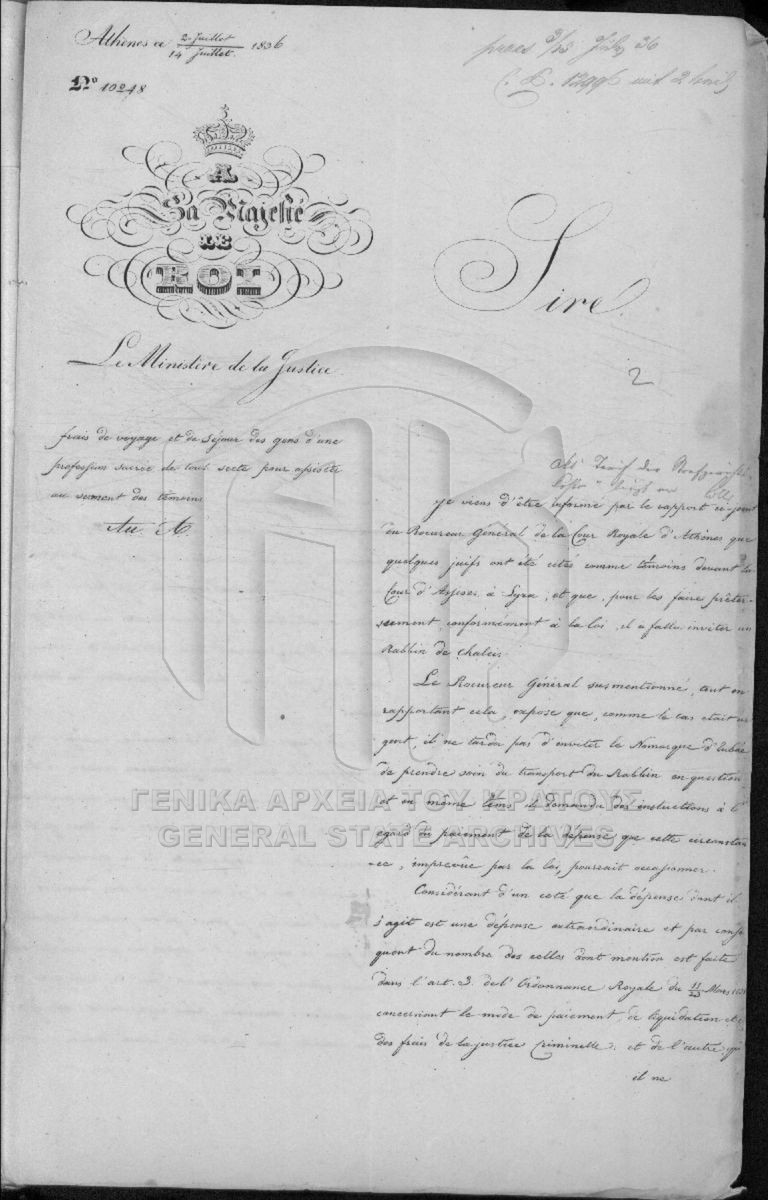 Athènes ce 2 Juillet / 14 Juillet 1836
No 10248
A
Sa Majesté
LE
ROI
Sire
Le Ministère de la Justice
2
frais de voyage et de séjour des gens d'une
profession sacrée de tout secte pour assister
au serment des témoins
Au. A.
je viens d'être informé par le rapport ci-joint
du Procureur Général de la Cour Royale d'Athènes que
quelques juifs ont été cités comme témoins devant la
Cour d'Assises à Syra, et que, pour les faire prêter
serment, conformément à la loi, il a fallu inviter un
Rabbin de Chalcis
Le Procureur Général susmentionné, tout en
rapportant cela, expose que, comme le cas était ur
gent, il ne tarda pas d'inviter le Nomarque d'Eubée
de prendre soin du transport du Rabbin en question
et en même tems il demanda des instructions à l'é
gard du paiement de la dépense que cette circonstan
ce, imprevûe par la loi, pourrait occasionner.
Considérant d'un coté que la dépense dont il
s'agit est une dépense extraordinaire et par consé
quent du nombre des celles dont mention est faite
dans l'art. 3. de l'Ordonnance Royale du 11/23 Mars
concernant le mode de paiement, de liquidation
des frais de la justice Criminelle; et de l'autre qu'
il ne
ΓΕΝΙΚΑ ΑΡΧΕΙΑ ΤΟΥ ΚΡΑΤΟΥΣ
GENERAL STATE ARCHIVES